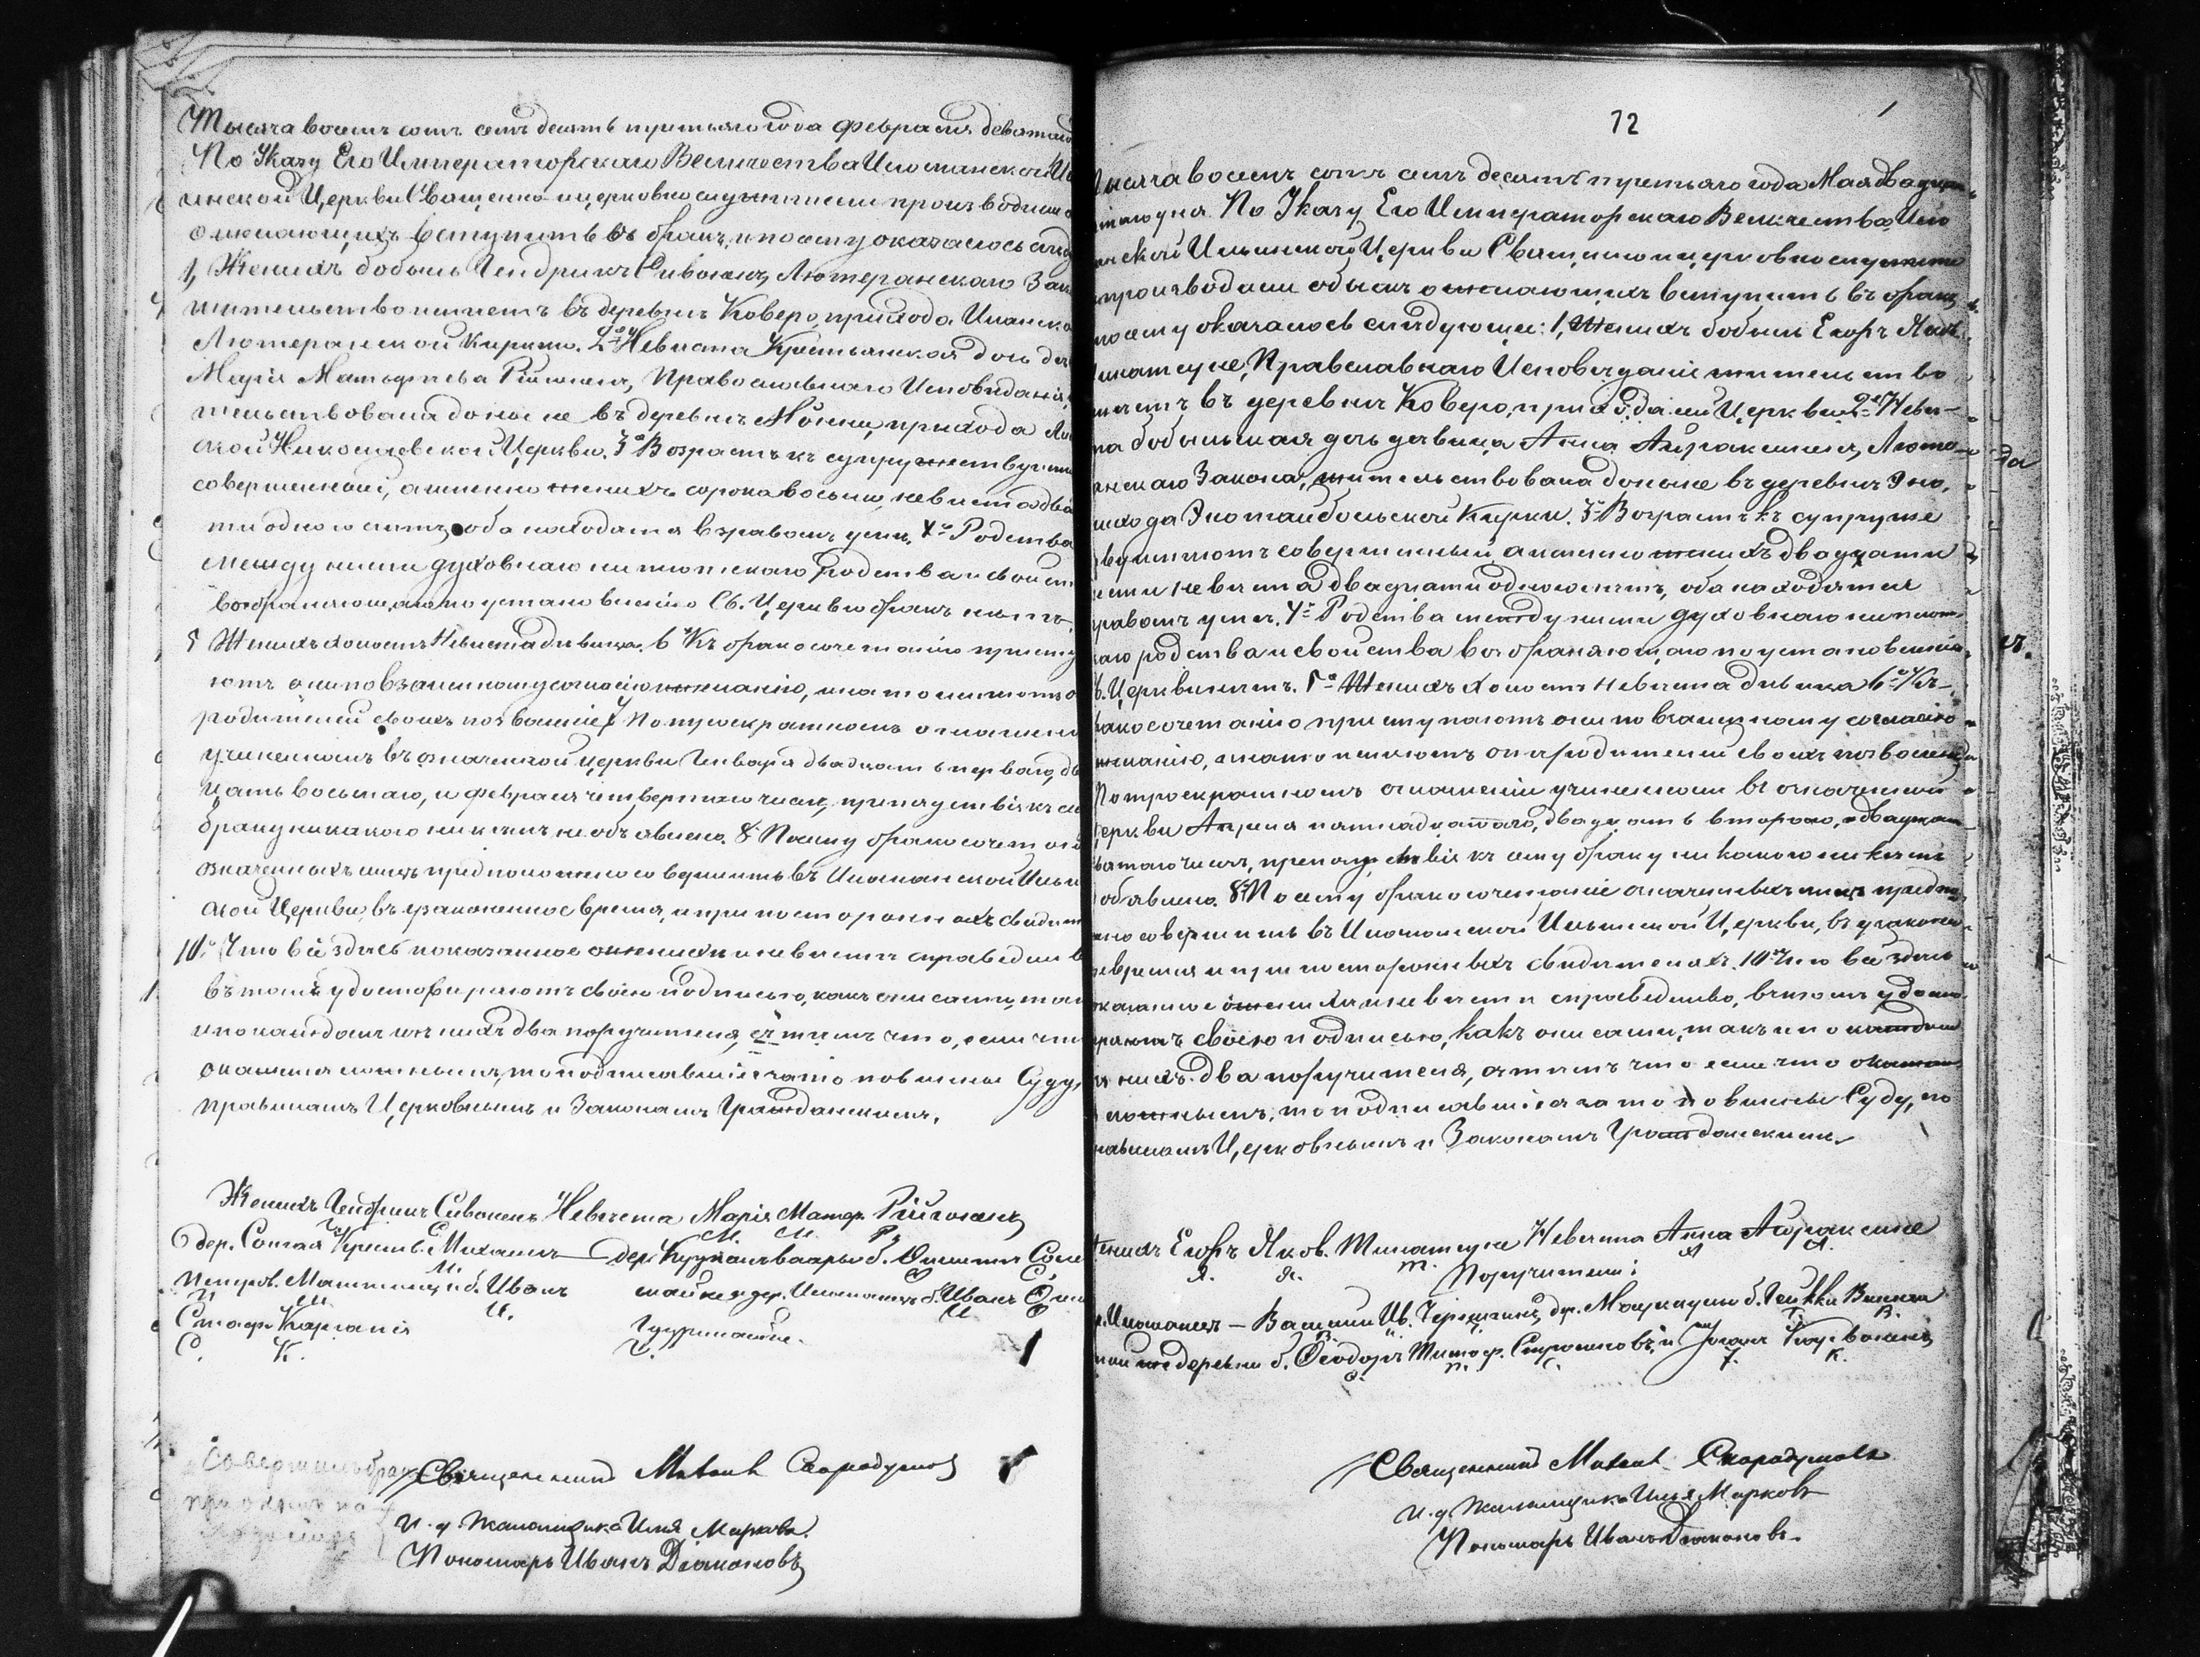 Тысяча восемь сотъ семъ десять третьяго года февраля девятаго
По Указу Его Императорскаго Величества Иломанской Иль
инской Церкви Священно и церковно служители производили о
желающихъ вступить въ бракъ, и по сему оказалось слѣд
1, Женихъ бобыль Гендрикъ Сивоненъ, Лютеранскаго Зак
жительство имѣетъ въ деревнѣ Коверо, прихода Иланска
Лютеранской Кирки. 2е Невѣста Крестьянская дочь дѣ
Марія Матвѣева Рійгоненъ, Православнаго Исповѣданія,
тельствовала донынѣ въ деревнѣ прихода
ской Николаевской Церкви. 3е Возрастъ къ супружеству имѣ
совершенный, а именно женихъ сорока восьми, невѣста два
ти одного лѣтъ, оба находятся въ здравомъ умѣ. 4е Родства
между ними духовнаго ни плотскаго родства и свойст
возбраняющаго по установленію Св. Церкви бракъ нѣтъ.
5 Женихъ холостъ Невѣста дѣвица. 6е Къ бракосочетанію присту
ютъ они по взаимному согласію и желанію, и на то имѣютъ о
родителей своихъ позволеніе. 7 По троекратномъ оглашеніи
учиненномъ въ означенной церкви Генваря двадцать перваго, дв
цать восьмаго, и февраля четвертаго числ, препядствія къ се
браку никакого никѣмъ не объявлено. 8е Посему бракосочетаніе
означенныхъ лицъ предположено совершить въ Иломанской Ильи
ской Церкви, въ узаконенное время, и при постороннихъ свидѣт
10е Что всё здѣсь показанное о женихѣ и невѣстѣ справедливо
въ томъ удостовѣряютъ своею подписью, какъ они сами, так
и по каждомъ изъ нихъ два поручителя, съ тѣмъ что, если что
окажется ложнымъ, то подписавшіеся за то повинны Суду,
правиламъ Церковнымъ и Законамъ Гражданскимъ.
Женихъ Гендрикъ Сивоненъ Невѣста Марія Матф. Рійгоненъ
М. М. Р.
дер. Крест. Михаилъ дер. б.
Петров. и б. Иванъ дер. б. Иванъ
И.
К.
Совершилъ бракъ
Священникъ Матвѣй Скородумовъ
И. д. Жаломщика Илія Марковъ.
Пономарь Иванъ Діаконовъ
72
Тысяча восемь сотъ семъ десять третьяго года Мая двадцать
таго дня. По Указу Его Императорскаго Величества, Ило
анской Ильинской Церкви Священно и церковно служите
производили обыскъ о желающихъ вступить въ бракъ,
по сему оказалось слѣдующее: 1, Женихъ бобыль Егоръ Яков.
Православнаго Исповѣданія жительство
имѣетъ въ деревнѣ Коверо, прихода сей Церкви. 2е Невѣ-
та бобыльская дочь дѣвица Анна Айраксинен, Люте-
ранскаго Закона, жительствовала донынѣ въ деревнѣ Эно,
прихода Кирки. 3е Возрастъ къ супруже
ству имѣютъ совершенный а именно женихъ двадцати
лѣтъ невѣста двадцати одного лѣтъ, оба находятся
здравомъ умѣ. 4е Родства между ними духовнаго ни плот
скаго родства и свойства возбраняющаго по установленію
Св. Церкви нѣтъ. 5е Женихъ холостъ невѣста дѣвица 6е Къ
бракосочетанію приступаютъ они по взаимному согласію
желанію, и на то имѣютъ отъ родителей своихъ позволеніе
По троекратномъ оглашеніи учиненномъ въ означенной
Церкви Апреля пятнадцатаго, двадцать втораго, и двадцат
девятаго числъ, препядствія къ сему браку никакого никѣмъ
объявлено. 8е По сему бракосочетаніе означенныхъ лицъ предпо
жено совершить въ Иломанской Ильинской Церкви, въ узаконен
е время и при постороннихъ свидѣтеляхъ. 10е Что всё здѣсь
оказанное о женихѣ и невѣстѣ справедливо, въ томъ удосто
ряютъ своею подписью, какъ они сами, такъ и по каждом
изъ нихъ два поручителя, съ тѣмъ что если что окажет
ложнымъ, то подписавшіеся за то повинны Суду, по
равиламъ Церковнымъ и Законамъ Гражданскимъ.
Женихъ Егоръ Яков. Невѣста Анна Айраксине
Поручители:
Иломанцъ — Василій Ив. б.
той же деревни б. Феодоръ и
Священникъ Матвѣй Скородумовъ
И. д. Жаломщика Илія Марковъ
Пономарь Иванъ Діаконовъ.